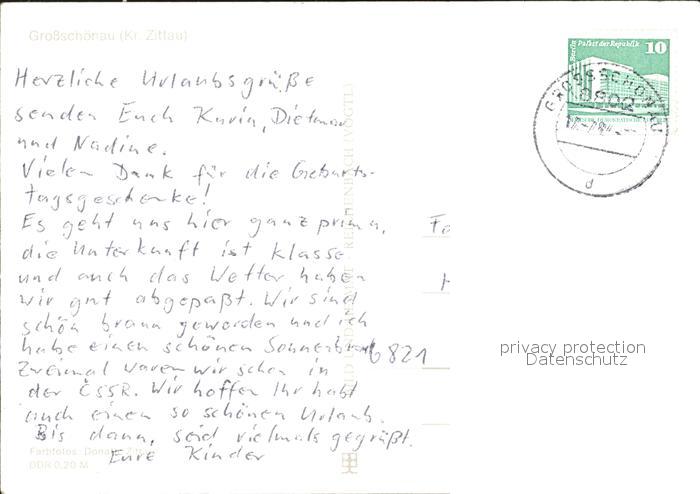 Großschönau (Kr. Zittau)
Herzliche Urlaubsgrüße
senden Euch Karin, Dietmar
und Nadine.
Vielen Dank für die Geburts-
tagsgeschenke!
Es geht uns hier ganz prima,
die Unterkunft ist klasse
und auch das Wetter haben
wir gut abgepaßt. Wir sind
schön braun geworden und ich
habe einen schönen Sonnenbrand
Zweimal waren wir schon in
der ČSSR. Wir hoffen Ihr habt
auch einen so schönen Urlaub.
Bis dann, seid vielmals gegrüßt.
Eure Kinder
Farbfotos: Donath, Zittau
DDR 0,20 M
Berlin Palast der Republik 10
GROSSSCHÖNAU
8802
d
6821
privacy protection
Datenschutz